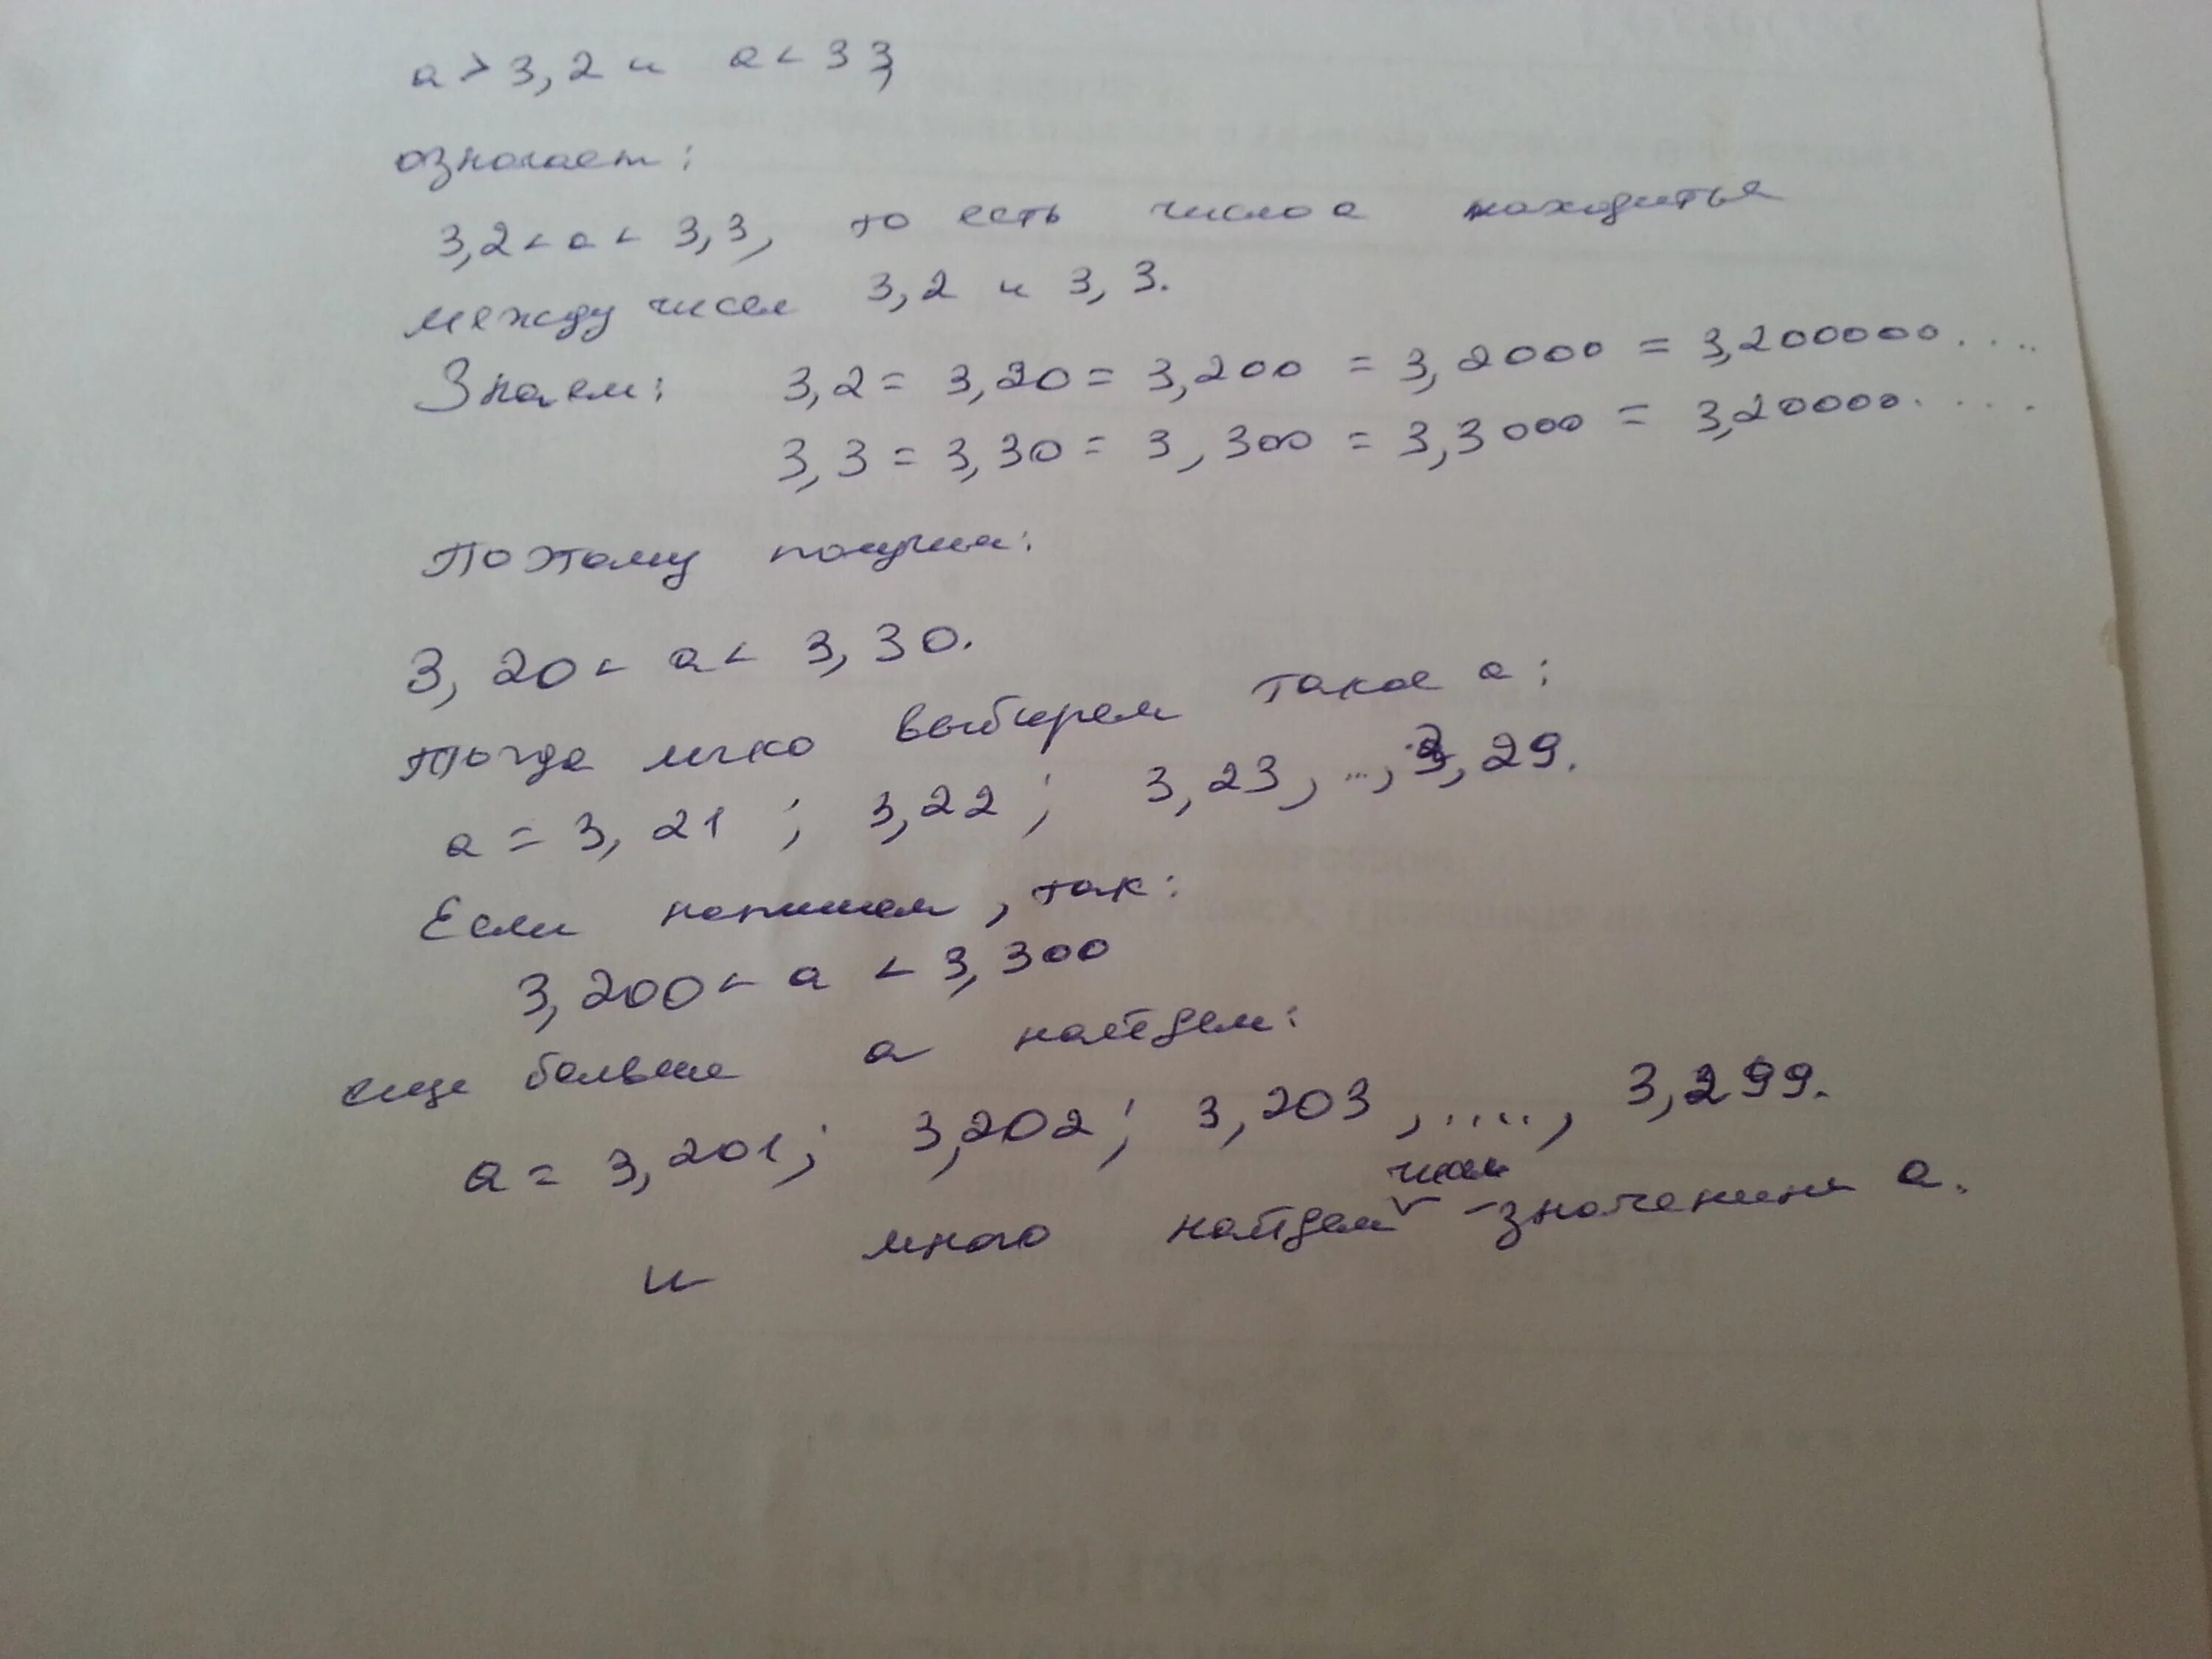 a > 3,2 и a < 3 3,
означает:
3,2 < a < 3,3, то есть число a находитья
между чисел 3,2 и 3,3.
Знаем: 3,2 = 3,20 = 3,200 = 3,2000 = 3,200000....
3,3 = 3,30 = 3,300 = 3,3000 = 3,20000....
Поэтому получим:
3,20 < a < 3,30.
Тогда легко выбирем такое a:
a = 3,21 ; 3,22 ; 3,23, ..., 3,29.
Если напишем, так:
3,200 < a < 3,300
еще больше a найдем:
a = 3,201; 3,202; 3,203, ....., 3,299.
чисел
и много найдем - значения a.